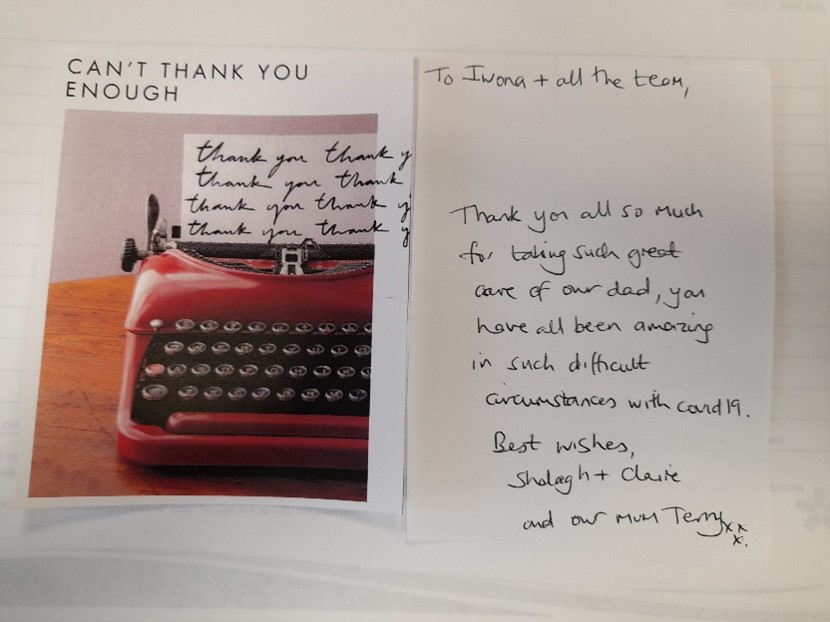 CAN'T THANK YOU
ENOUGH
thank you thank y
thank you thank
thank you thank y
thank you thank y
To Iwona + all the team,
Thank you all so much
for taking such great
care of our dad, you
have all been amazing
in such difficult
circumstances with covid19.
Best wishes,
Shelagh + Claire
and our mum Terry xx
x.